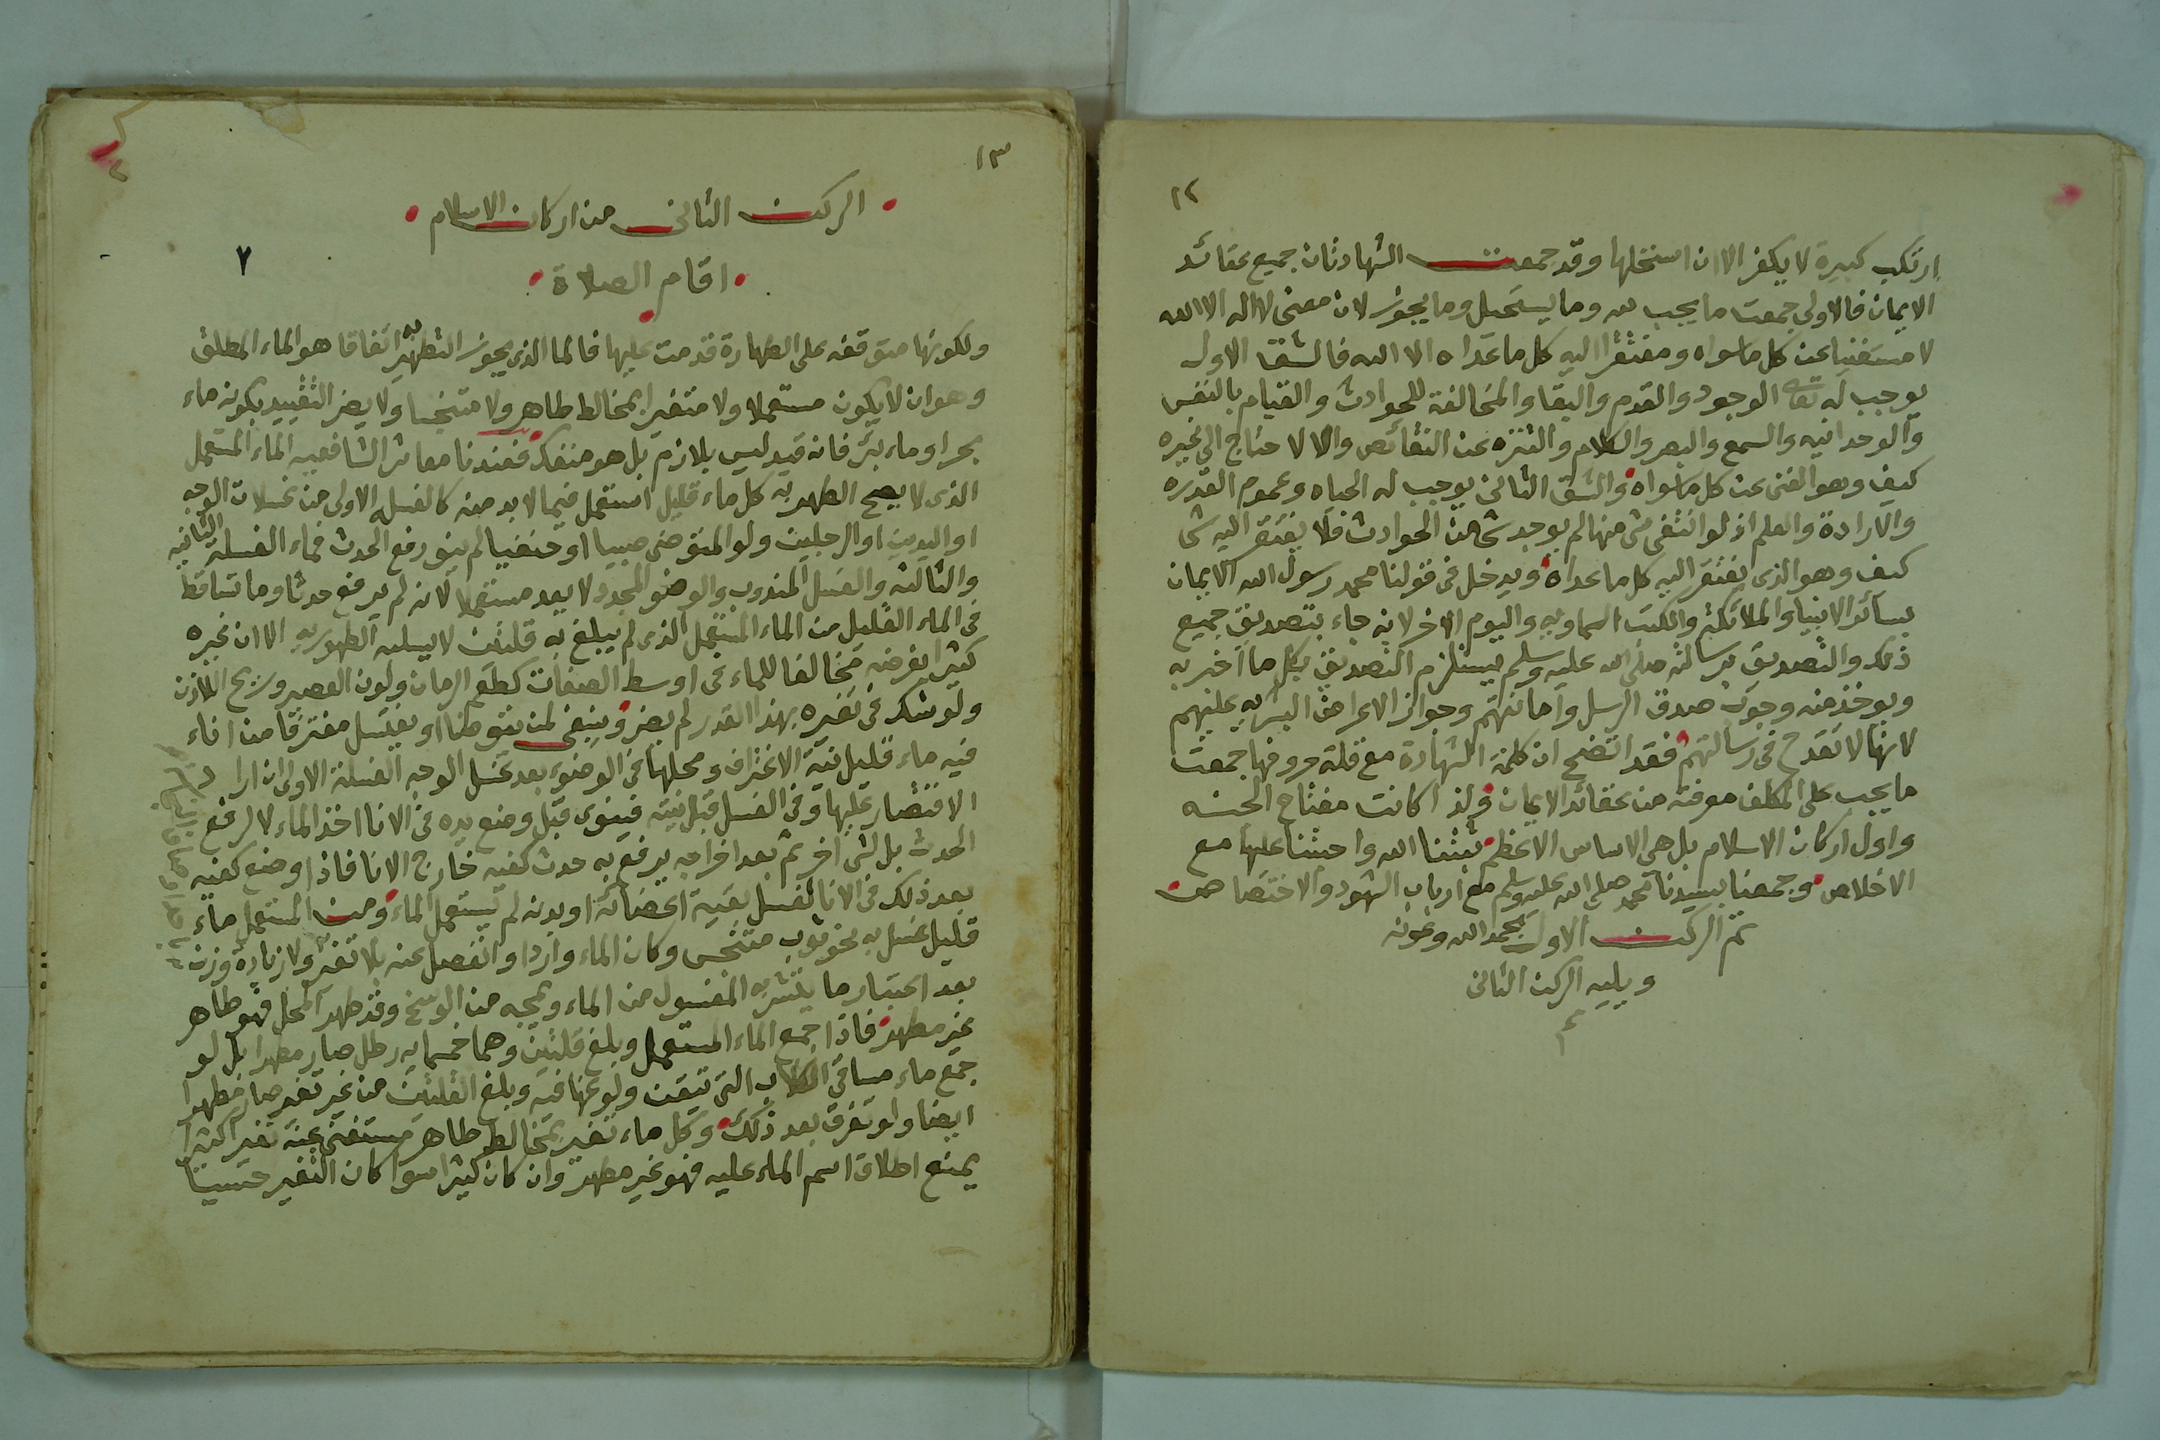 ١٢
ارتكب كبيرة لا يكفر الا ان استحلها وقد جمعت الشهادتان جميع عقائد
الايمان فالاولى جمعت ما يجب لله وما يستحيل وما يجوز لان معنى لا اله الا الله
لا مستغنيا عن كل ما سواه ومفتقرا اليه كل ما عداه الا الله فالشق الاول
يوجب له تعالى الوجود والقدم والبقا والمخالفة للحوادث والقيام بالنفس
والوحدانيه والسمع والبصر والكلام والتنزه عن النقائص والا لاحتاج الى غيره
كيف وهو الغنى عن كل ما سواه والشق الثانى يوجب له الحياه وعموم القدره
والارادة والعلم اذ لو انتفى شى منها لم يوجد شى من الحوادث فلا يفتقر اليه شى
كيف وهو الذى يفتقر اليه كل ما عداه ويدخل فى قولنا محمد رسول الله الايمان
بسائر الانبيا والملائكة والكتب السماويه واليوم الاخر لانه جاء بتصديق جميع
ذلك والتصديق برسالته صلى الله عليه وسلم يستلزم التصديق بكل ما اخبر به
ويوخذ منه وجوب صدق الرسل وامانتهم وجواز الاعراض البشريه عليهم
لانها لا تقدح فى رسالتهم فقد اتضح ان كلمة الشهادة مع قلة حروفها جمعت
ما يجب على المكلف معرفته من عقائد الايمان ولذا كانت مفتاح الجنه
واول اركان الاسلام بل هى الاساس الاعظم ثبتنا الله واحيانا عليها مع
الاخلاص وجمعنا بسيدنا محمد صلى الله عليه وسلم مع ارباب الشهود والاختصاص
تم الركن الاول بحمد الله وعونه
ويليه الركن الثانى
م
١٣
الركن الثانى من اركان الاسلام
٧
اقام الصلاة
ولكونها متوقفه على الطهارة قدمت عليها فالما الذى يجوز التطهر به اتفاقا هو الماء المطلق
وهو ان لا يكون مستعملا ولا متغيرا بمخالط طاهر ولا متنجسا ولا يضر التقييد بكونه ماء
بحر او ماء بئر فانه قيد ليس بلازم بل هو منفك فعندنا معاشر الشافعيه الماء المستعمل
الذى لا يصح الطهر به كل ماء قليل استعمل فيما لا بد منه كالغسله الاولى من غسلات الوجه
او اليدين او الرجلين ولو المتوضى صبيا او حنفيا لم ينو رفع الحدث فماء الغسلة الثانيه
والثالثه والغسل المندوب والوضو المجدد لا يعد مستعملا لانه لم يرفع حدثا وما تساقط
فى الماء القليل من الماء المستعمل الذى لم يبلغ به قلتين لا يسلبه الطهوريه الا ان غيره
كثيرا بفرضه مخالفا للماء فى اوسط الصفات كطعم الرمان ولون العصير وريح اللاذن
ولو شك فى تغيره بهذا القدر لم يضر وينبغى لمن يتوضا او يغتسل مغترفا من اناء
فيه ماء قليل نية الاغتراف ومحلها فى الوضوء بعد غسل الوجه الغسلة الاولى ان اراد
الاقتصار عليها وفى الغسل قبل نيته فينوى قبل وضع يده فى الانا اخذ الماء لا لرفع
الحدث بل لشى اخر ثم بعد اخراجه يرفع به حدث كفيه خارج الانا فاذا وضع كفيه
بعد ذلك فى الانا لغسل بقية اعضائه او بدنه لم يستعمل الماء ومن المستعمل ماء
قليل غسل به نحو ثوب متنجس وكان الماء واردا وانفصل عنه بلا تغير ولا زيادة وزن
بعد اعتبار ما يتشربه المغسول من الماء ويمجه من الوسخ وقد طهر المحل فهو طاهر
غير مطهر فاذا جمع الماء المستعمل وبلغ قلتين وهما خمسمايه رطل صار مطهرا بل لو
جمع ماء مساقى الكلاب التى تيقن ولوغها فيه وبلغ القلتين من غير تغير صار مطهرا
ايضا ولو تفرق بعد ذلك وكل ماء تغير بمخالط طاهر مستغنى عنه تغيرا كثيرا
يمنع اطلاق اسم الماء عليه فهو غير مطهر وان كان كثيرا سوا كان التغير حسيا